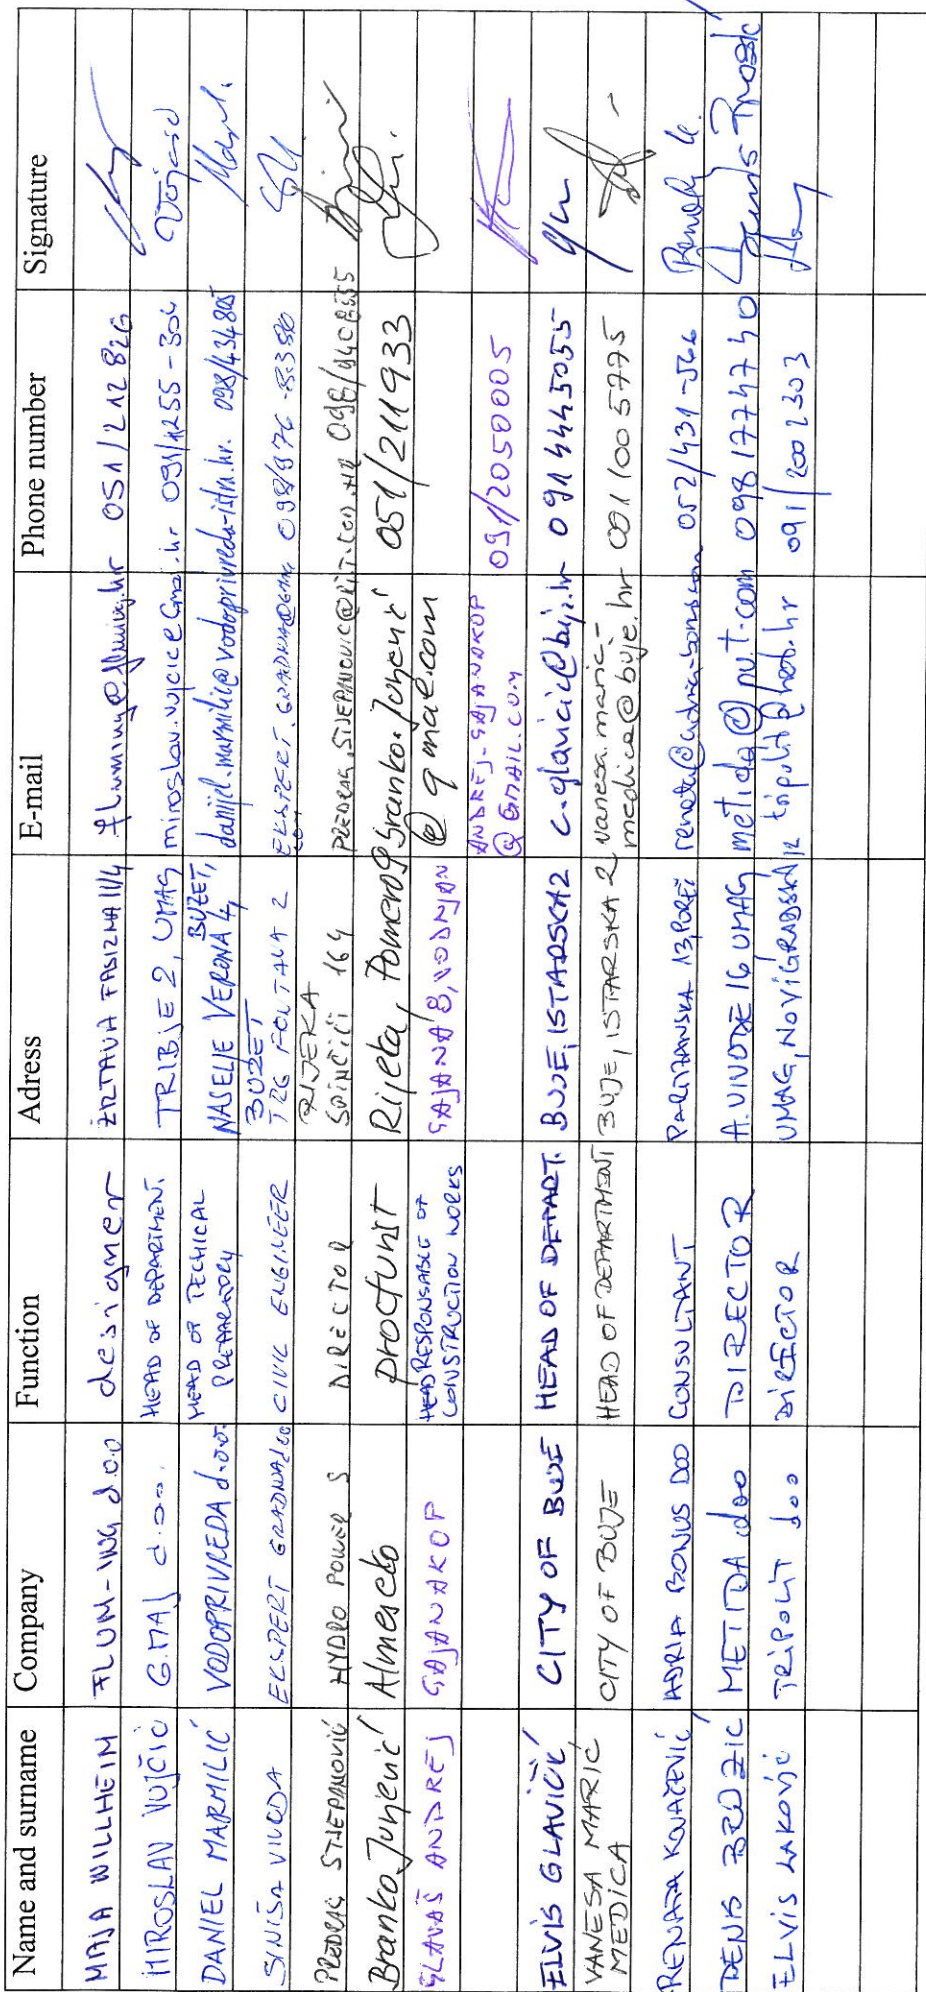 Name and surname Company Function Adress E-mail Phone number Signature
MAJA WILLHEIM FLUM-ING d.o.o designer ŽRTAVA FAŠIZMA 11/4 fluming@fluming.hr 051/212 826
MIROSLAV VUJČIĆ G.MAJ d.o.o. HEAD OF DEPARTMENT. TRIBJE 2, UMAG miroslav.vujcic@gmaj.hr 091/1255-304 Vujčić
DANIEL MARMILIĆ VODOPRIVREDA d.o.o. HEAD OF TECHICAL PREPARATORY NASELJE VERONA 4, BUZET, danijel.marmilic@vodoprivreda-istra.hr. 098/434805
SINIŠA VIVODA EKSPERT GRADNJA d.o.o CIVIL ENGINEER BUZET TRG FONTANA 2 EKSPERT.GRADNJA@GMAIL.COM 098/976-8356
PREDRAG STJEPANOVIĆ HYDRO POWER S DIRECTOR RIJEKA SPINČIĆI 164 PREDRAG.STJEPANOVIC@RI.T-COM.HR
Branko Junjević Almesco Rijeka, @gmail.com 051/211933
GLAVAŠ ANDREJ GAJANAKOP HEAD RESPONSABLE OF CONSTRUCTION WORKS GAJANA 8, VODNJAN ANDREJ-GAJANAKOP @GMAIL.COM 091/2050005
ELVIS GLAVIČIĆ CITY OF BUJE HEAD OF DEPART. BUJE, ISTARSKA 2 e.glavicic@buje.hr 091 4445055
VANESA MARIĆ MEDICA CITY OF BUJE HEAD OF DEPARTMENT BUJE, ISTARSKA 2 vanesa.maric-medica@buje.hr 091 100 5775
RENATA KOVAČEVIĆ ADRIA BONUS DOO CONSULTANT PARTIZANSKA 13, POREČ renata@adria-bonus.com 052/431-566
DENIS BROZIĆ METIDA doo DIRECTOR A. VIVODE 16 UMAG metida@pu.t-com 098 1774740
ELVIS LAKOVIĆ TRIPOLIT doo DIRECTOR UMAG, NOVIGRADSKA tripolit@hotb.hr 091/200 2303